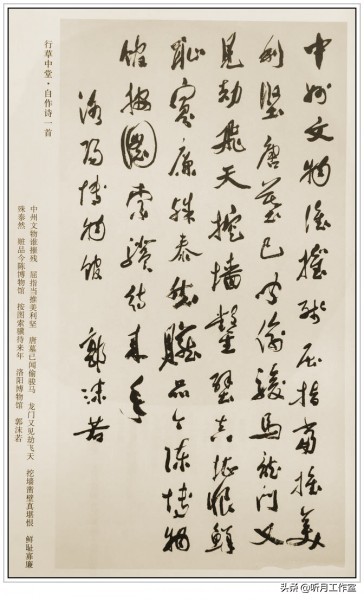 中州文物誰摧殘屈指當推美
利堅唐墓已聞偷駿馬龍門又
見劫飛天挖墻鑿壁真堪恨鮮
恥寡廉殊泰然贓品今陳博物
館按圖索驥待來年
洛陽博物館 郭沫若
行草中堂·自作诗一首
中州文物谁摧残 屈指当推美利坚 唐墓已闻偷骏马 龙门又见劫飞天 挖墙凿壁真堪恨 鲜耻寡廉
殊泰然 赃品今陈博物馆 按图索骥待来年 洛阳博物馆 郭沫若
头条 @听月工作室